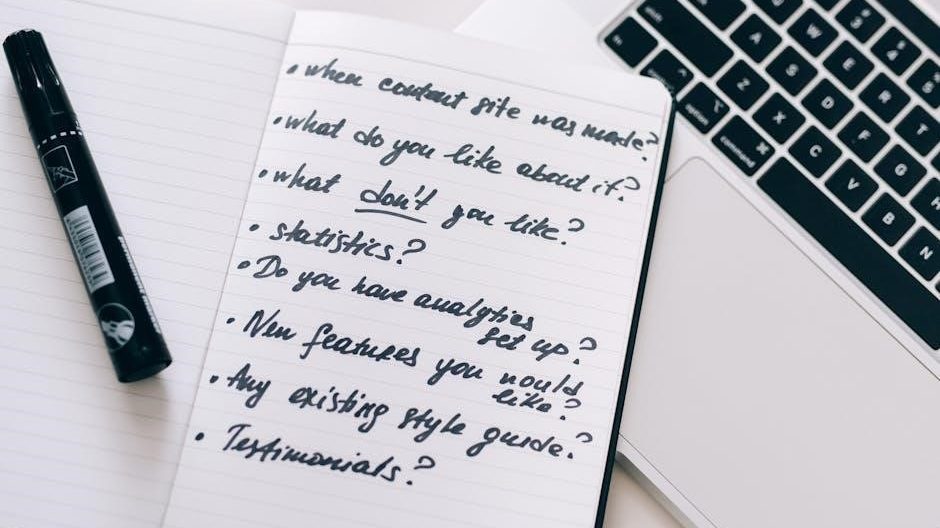 • when content site was made?
• what do you like about it?
• what don't you like?
• statistics?
• Do you have analytics
set up?
• New features you would
like?
• Any existing style guide?
• Testimonials?
shift
fn
option
command
⌘
A
Z
W
S
X
3
E
D
C
4
R
F
V
T
G
B
H
N